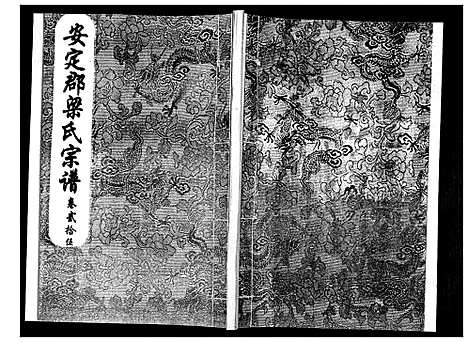 安定郡梁氏宗谱
卷贰拾伍